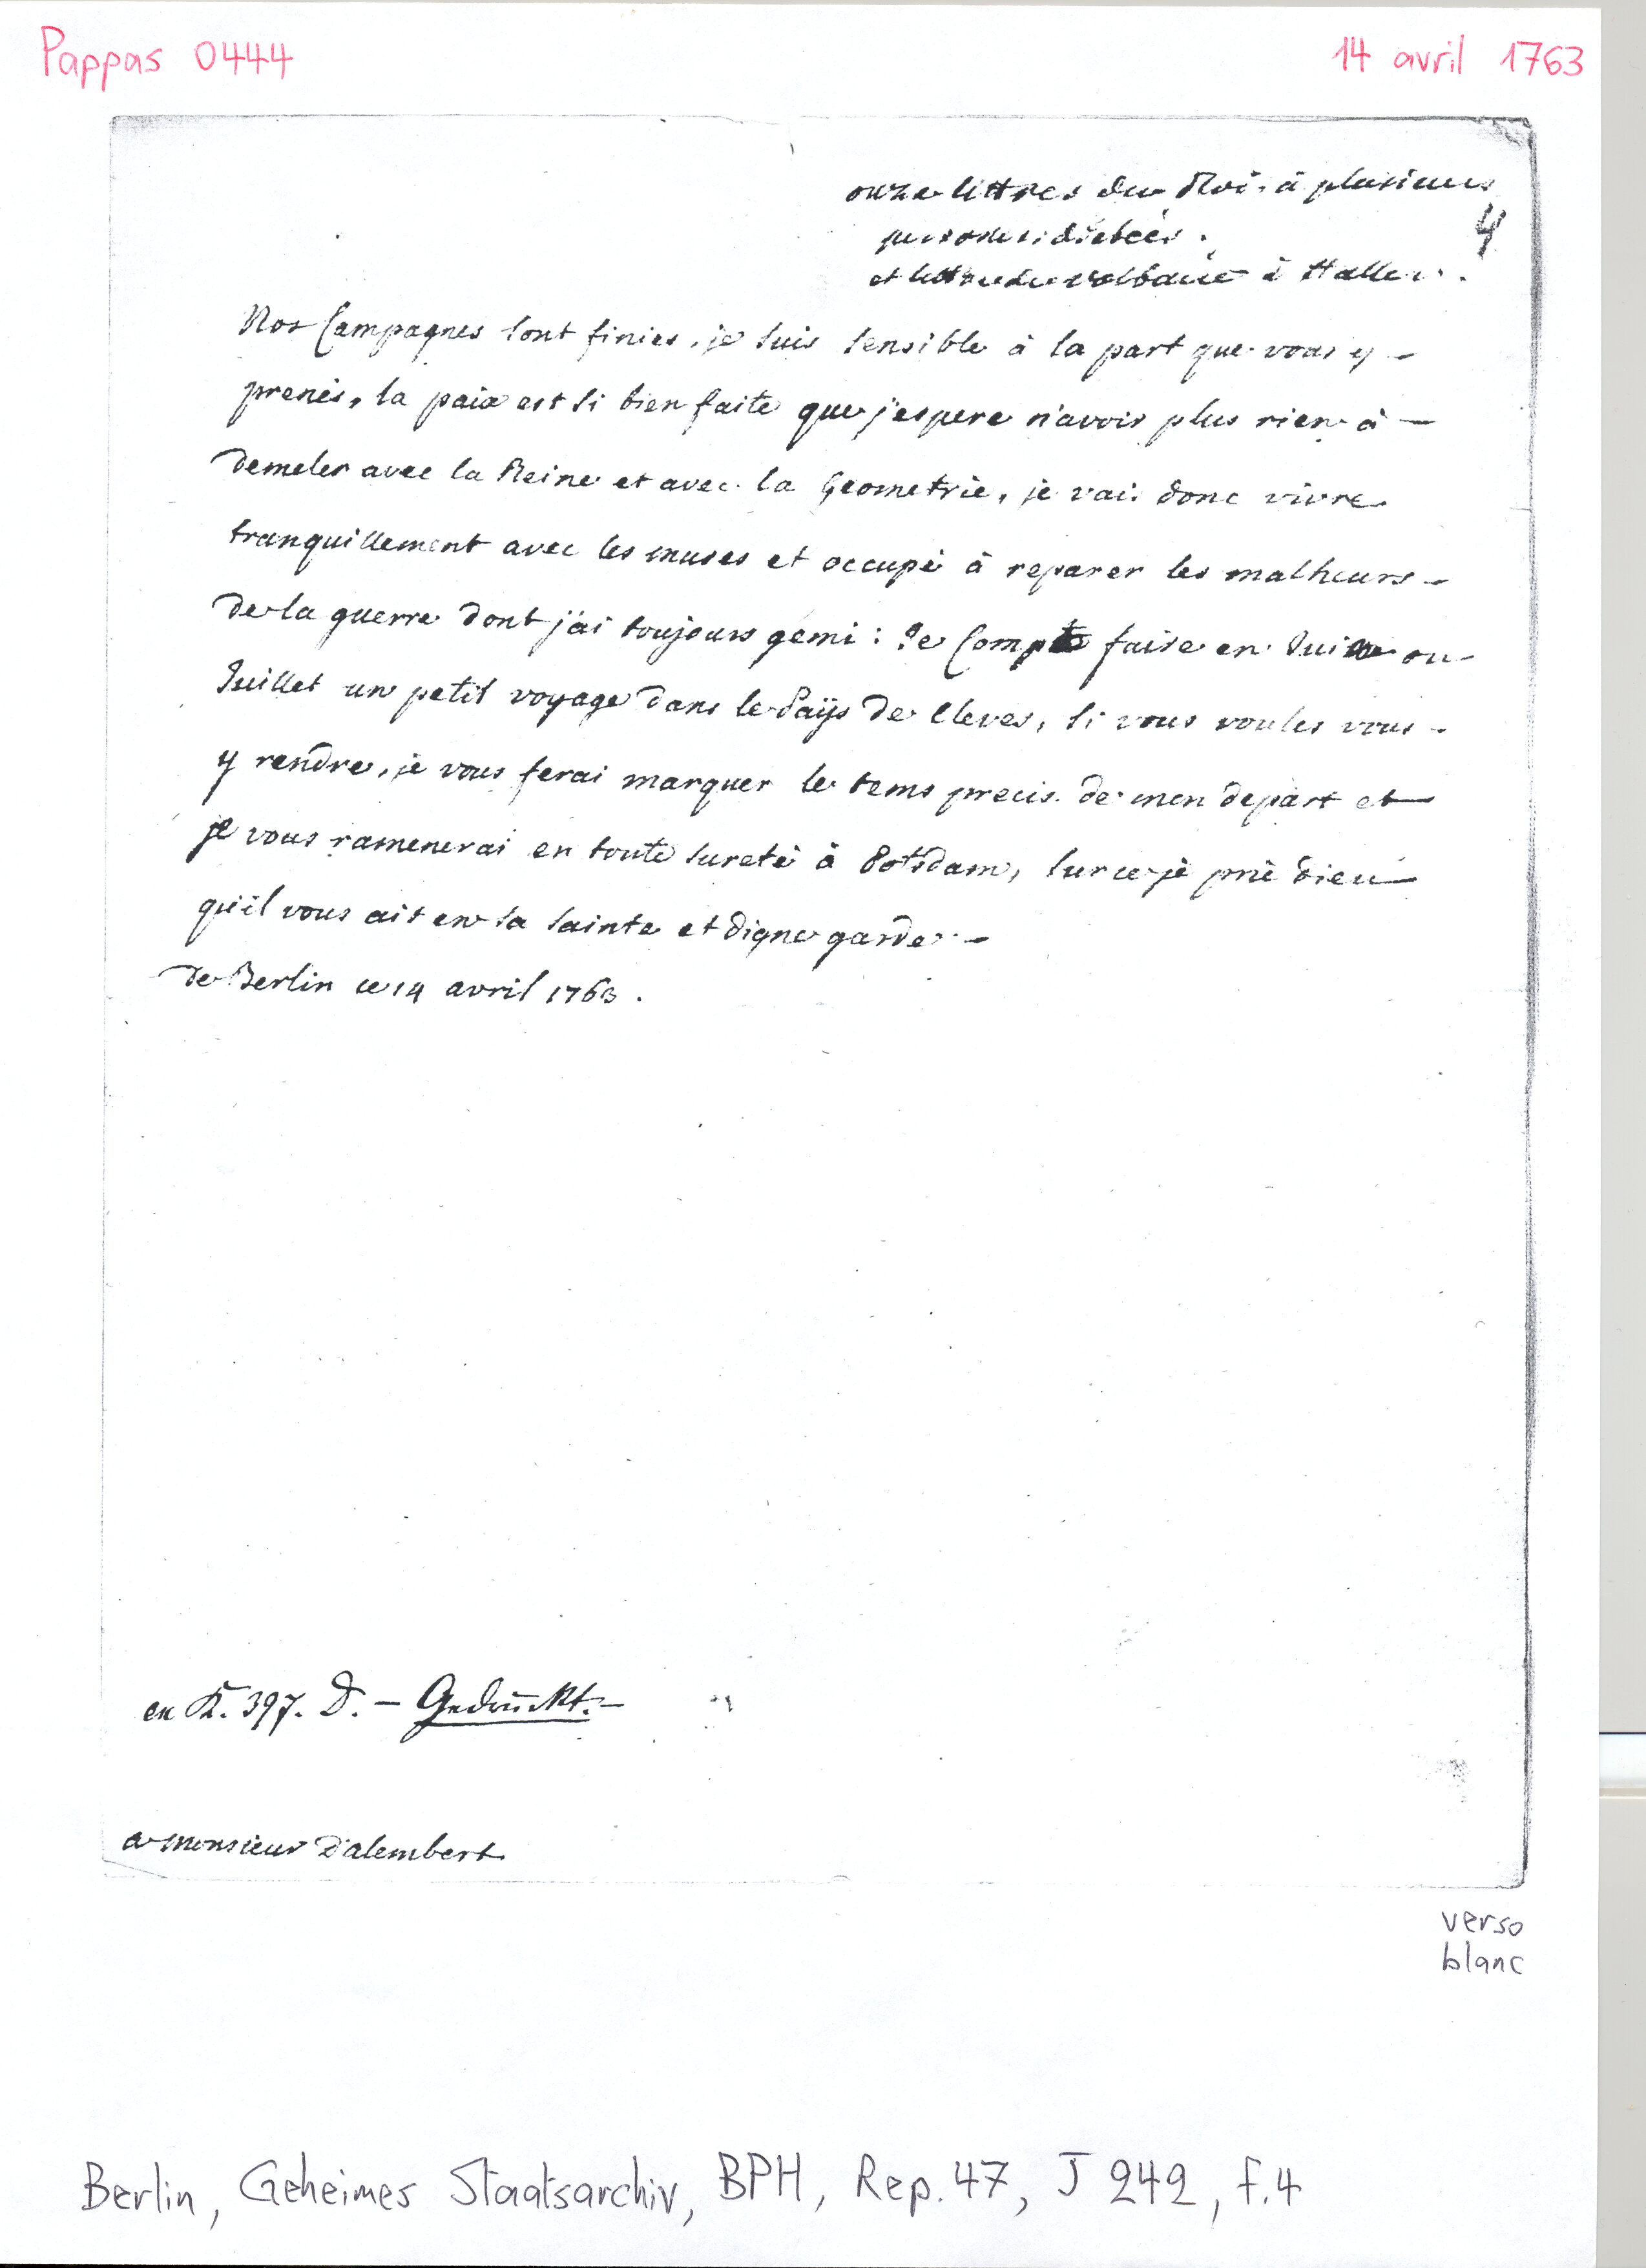 Pappas 0444
14 avril 1763
onze lettres du Roi à plusieurs
4
et lettre de voltaire à Haller.
Nos Campagnes sont finies, je suis sensible à la part que vous y -
prenés, la paix est si bien faite que j'espere n'avoir plus rien à -
demeler avec la Reine et avec la Geometrie, je vais donc vivre
tranquillement avec les muses et occupé à reparer les malheurs -
de la guerre dont j'ai toujours gémi : Je Compte faire en Juin ou -
Juillet un petit voyage dans le Païs de Cleves, si vous voules vous -
y rendre, je vous ferai marquer le tems precis de mon depart et
je vous ramenerai en toute sureté à Potsdam, sur ce je prie dieu
qu'il vous ait en sa sainte et digne garde -
de Berlin ce 14 avril 1763.
en K. 397. D. - Gedruckt. -
a monsieur d'alembert
verso
blanc
Berlin, Geheimes Staatsarchiv, BPH, Rep. 47, J 242, f. 4